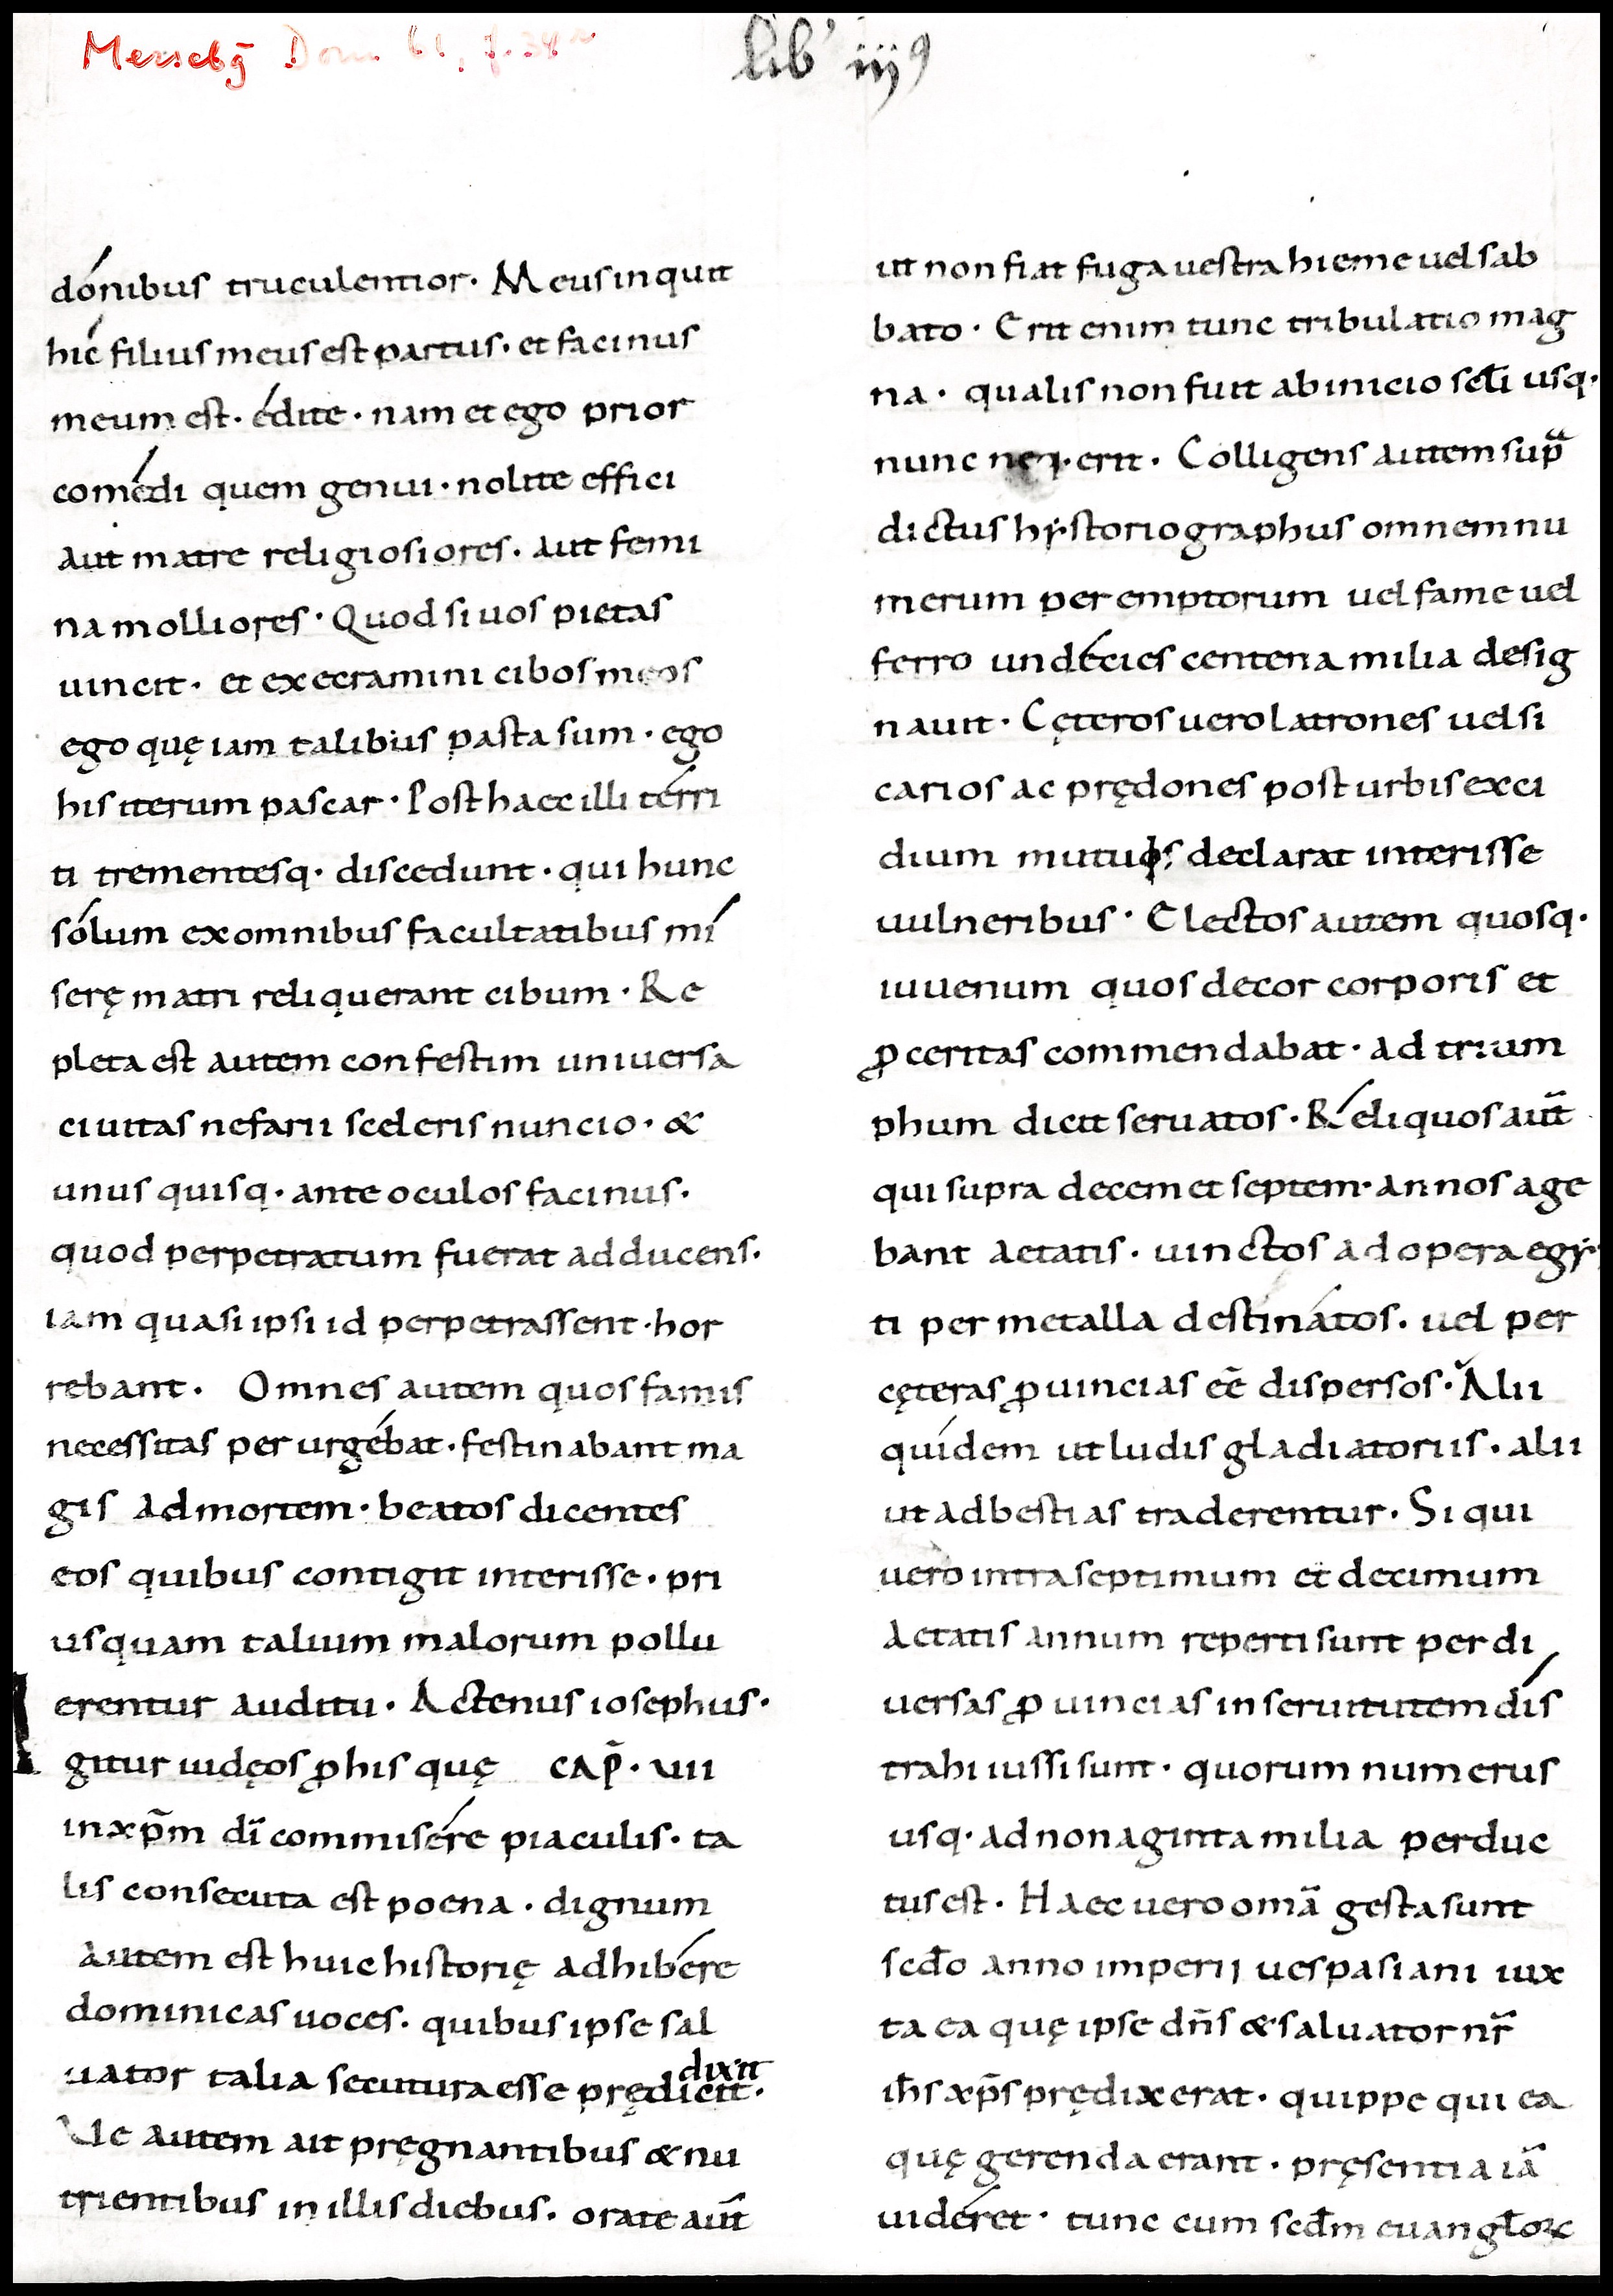 Mersebg Dom 61, f. 38r
lib' iii9
dónibus truculentior· Meus inquit
híc filius meus est partus· et facinus
meum est· édite· nam et ego prior
comédi quem genui· nolite effici
aut matre religiosiores· aut femi
na molliores· Quod si uos pietas
uincit· et execramini cibos meos
ego quę iam talibus pasta sum· ego
his iterum pascar· Post haec illi térri
ti trementesq· discedunt· qui hunc
sólum ex omnibus facultatibus mí
serę matri reliquerant cibum· Re
pleta est autem confestim uniuersa
ciuitas nefarii sceleris nuncio· &
unus quisq· ante oculos facinus·
quod perpetratum fuerat adducens·
iam quasi ipsi id perpetrassent· hor
rebant· Omnes autem quos famis
necessitas perurgébat· festinabant ma
gis ad mortem· beatos dicentes
eos quibus contigit interisse· pri
usquam talium malorum pollu
erentur auditu· Actenus iosephus·
Igitur iudęos ꝓ his quę CAP̄· VII
in xp̄m dī commisére piaculis· ta
lis consecuta est poena· dignum
autem est huic historię adhibére
dominicas uoces· quibus ipse sal
uator talia secutura esse prędicit· dixit
Ue autem ait pręgnantibus & nu
trientibus in illis diebus· orate aut̄
ut non fiat fuga uestra hieme uel sab
bato· Erit enim tunc tribulatio mag
na· qualis non fuit ab inicio scl̄i usq·
nunc neq· erit· Colligens autem sup̄a
dictus hẏstoriographus omnem nu
merum peremptorum uel fame uel
ferro undécies centena milia desig
nauit· Cęteros uero latrones uel si
carios ac prędones post urbis exci
dium mutuis declarat interisse
uulneribus· Electos autem quosq·
iuuenum quos decor corporis et
ꝓceritas commendabat· ad trium
phum dicit seruatos· Réliquos aut̄
qui supra decem et septem· annos age
bant aetatis· uinctos ad opera egẏp
ti per metalla destinátos· uel per
cęteras ꝓuincias eē dispersos· Alii
quídem ut ludis gladiatoriis· alii
ut ad bestias traderentur· Si qui
uero intra septimum et decimum
aetatis annum reperti sunt per di
uersas ꝓuincias in seruitutem dís
trahi iussi sunt· quorum numerus
usq· ad nonaginta milia perduc
tus est· Haec uero omā gesta sunt
scdo anno imperii uespasiani iux
ta ea quę ipse dn̄s & saluator nr̄
ih̄s xp̄s prędixerat· quippe qui ea
quę gerenda erant· pręsentia iā
uidéret· tunc cum scdm euangl̄orꝫ